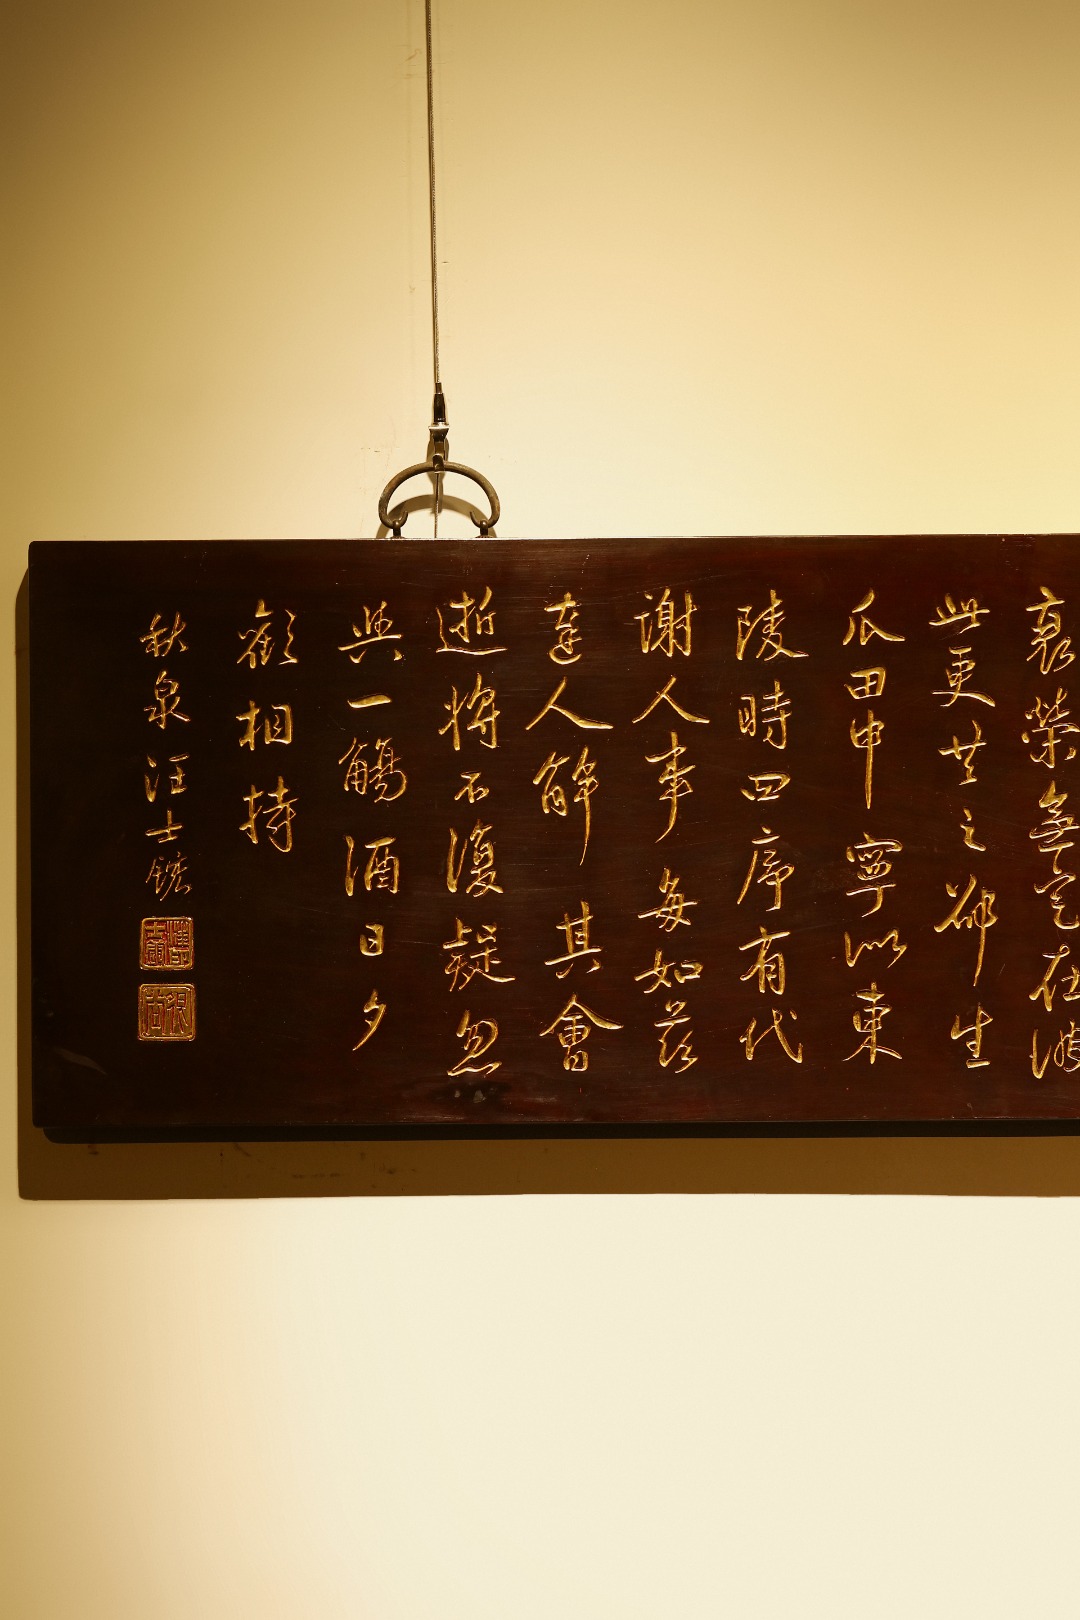 衰榮無定在彼
此更共之邵生
瓜田中寧似東
陵時四序有代
謝人事每如茲
達人解其會
逝將不復疑忽
與一觴酒日夕
歡相持
秋泉汪士鋐